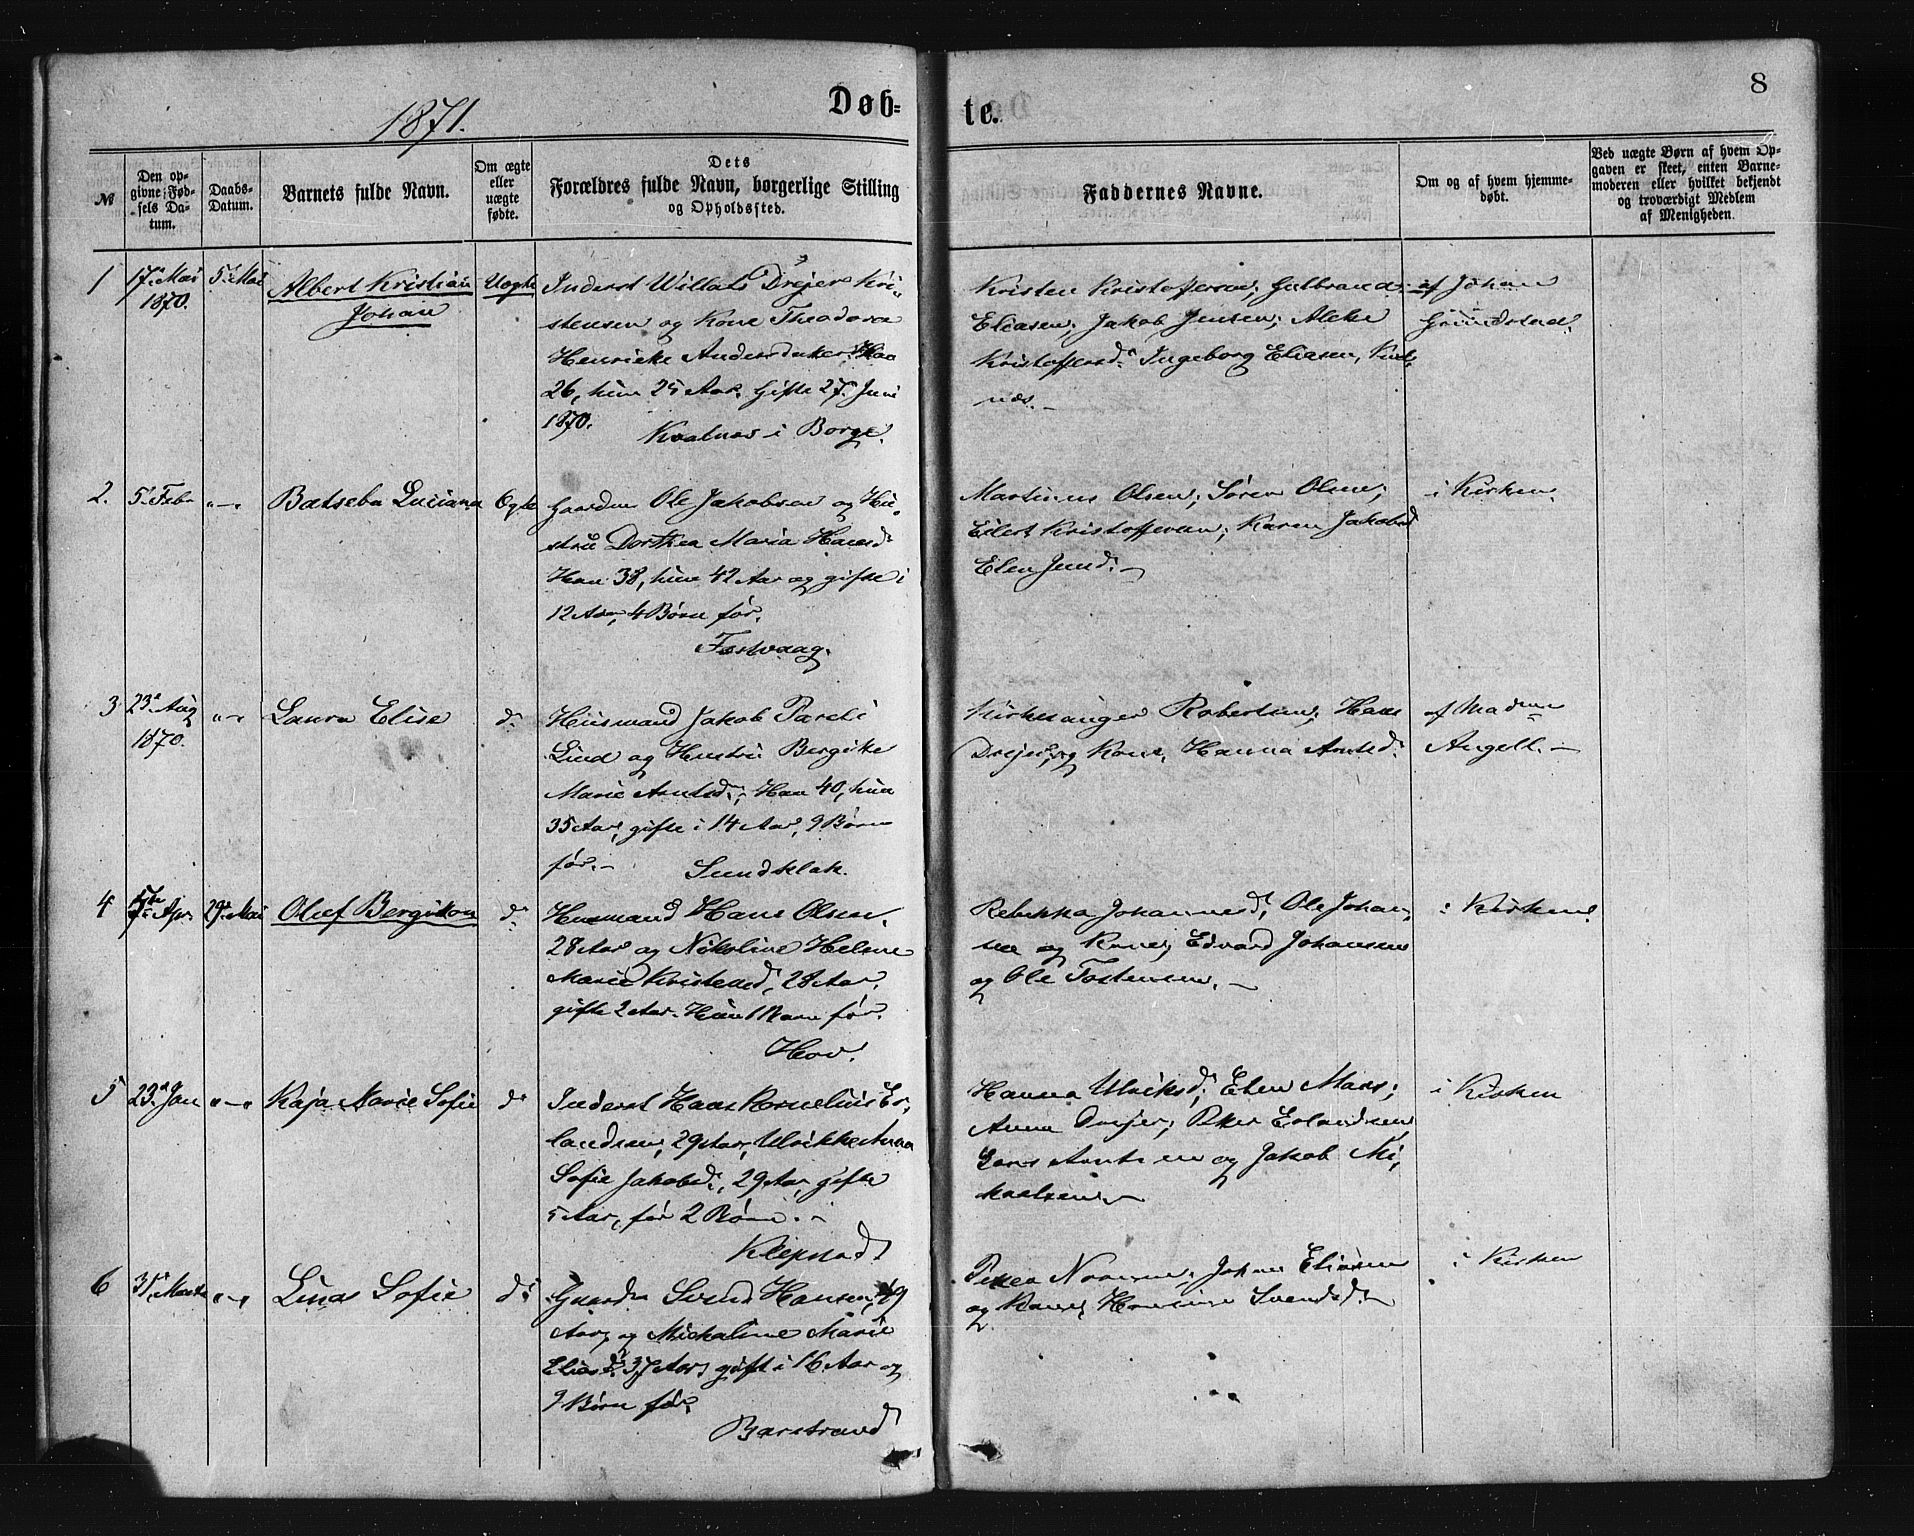 1871.
Døb=
te.
8
№
Den op-
givne Fød-
sels Da-
tum.
Daabs-
Datum.
Barnets fulde Navn.
Om ægte
eller
uægte
fødte.
Dets
Forældres fulde Navn, borgerlige Stilling
og Opholdssted.
Faddernes Navne.
Om og af hvem hjemme-
døbt.
Ved uægte Børn af hvem Op-
gaven er skeet, enten Barne-
moderen eller hvilket bekjendt
og troværdigt Medlem
af Menigheden.
1
17. Mai
1870.
5. Mai
Albert Kristian
Johan
Uægte
Inderst Willats Drejer Kri-
stensen og Kone Theodora
Henricke Andersdatter, Han
26, hun 25 Aar. Gifte 27. Juni
1870.
Kvalnæs i Borge.
Kristen Kristoffersen; Gulbrand
Eliasen; Jakob Jensen;
Kristoffersd. Ingeborg Eliasen,
næs. –
af Johan
2.
5. Febr
"–"
Batseba Luciana
Ægte
Gaardm Ole Jakobsen og Hu-
stru Dorthea Maria Hansd.
Han 38, hun 42 Aar og gifte i
12 Aar, 4 Børn før.
Fostvaag.
Martinus Olsen; Sören Olsen;
Eilert Kristoffersen; Karen Jakobsd
Elen Jensd. –
i Kirken.
3
23. Aug
1870.
"–"
Laura Elise
d.
Husmand Jakob Pareli
Lind og Hustru Bergite
Marie Arntsd., Han 40, hun
35 Aar, gifte i 14 Aar, 9 Børn
før. –
Sundklak.
Kirkesanger Robertsen; Hans
Drejer, og Kone, Hanna Arntsd.
af Madm
Angell. –
4
17de Apr.
29. Mai
Oluf Bergiton
d.
Husmand Hans Olsen,
28 Aar og Nikoline Helene
Marie Kristensd, 28 Aar.
gifte 2 Aar. Hun 1 Barn før.
Hov.
Rebekka Johannesd, Ole Johan-
sen og Kone, Edvard Johansen
og Ole Tostensen. –
i Kirken.
5
23. Jan
"–"
Kaja Marie Sofie
d.
Inderst Hans Kornelius Er-
landsen, 29 Aar, Ulrikke Anna
Sofie Jakobsd., 29 Aar, gifte
5 Aar, før 2 Børn. –
Klepstad
Hanna Ulriksd; Elen Mars;
Anna Drejer; Peter Erlandsen
Lars Arntsen og Jakob Mi-
kaelsen. –
i Kirken
6
31. Marts
"–"
Linas Sofie
d.
Gaardm Svend Hansen, 49
Aar og Mickaline Marie
Eliasd. 37 Aar, gift i 16 Aar og
9 Børn før.
Barstrand
Johan Eliasen
og Kone, Hansine Svendsd. –
i Kirken